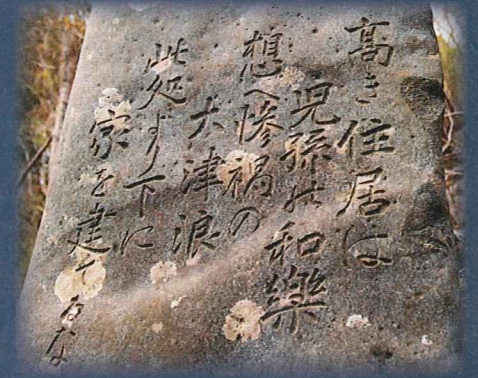 高き住居は
児孫の和樂
想へ惨禍の
大津浪
此処より下に
家を建てるな